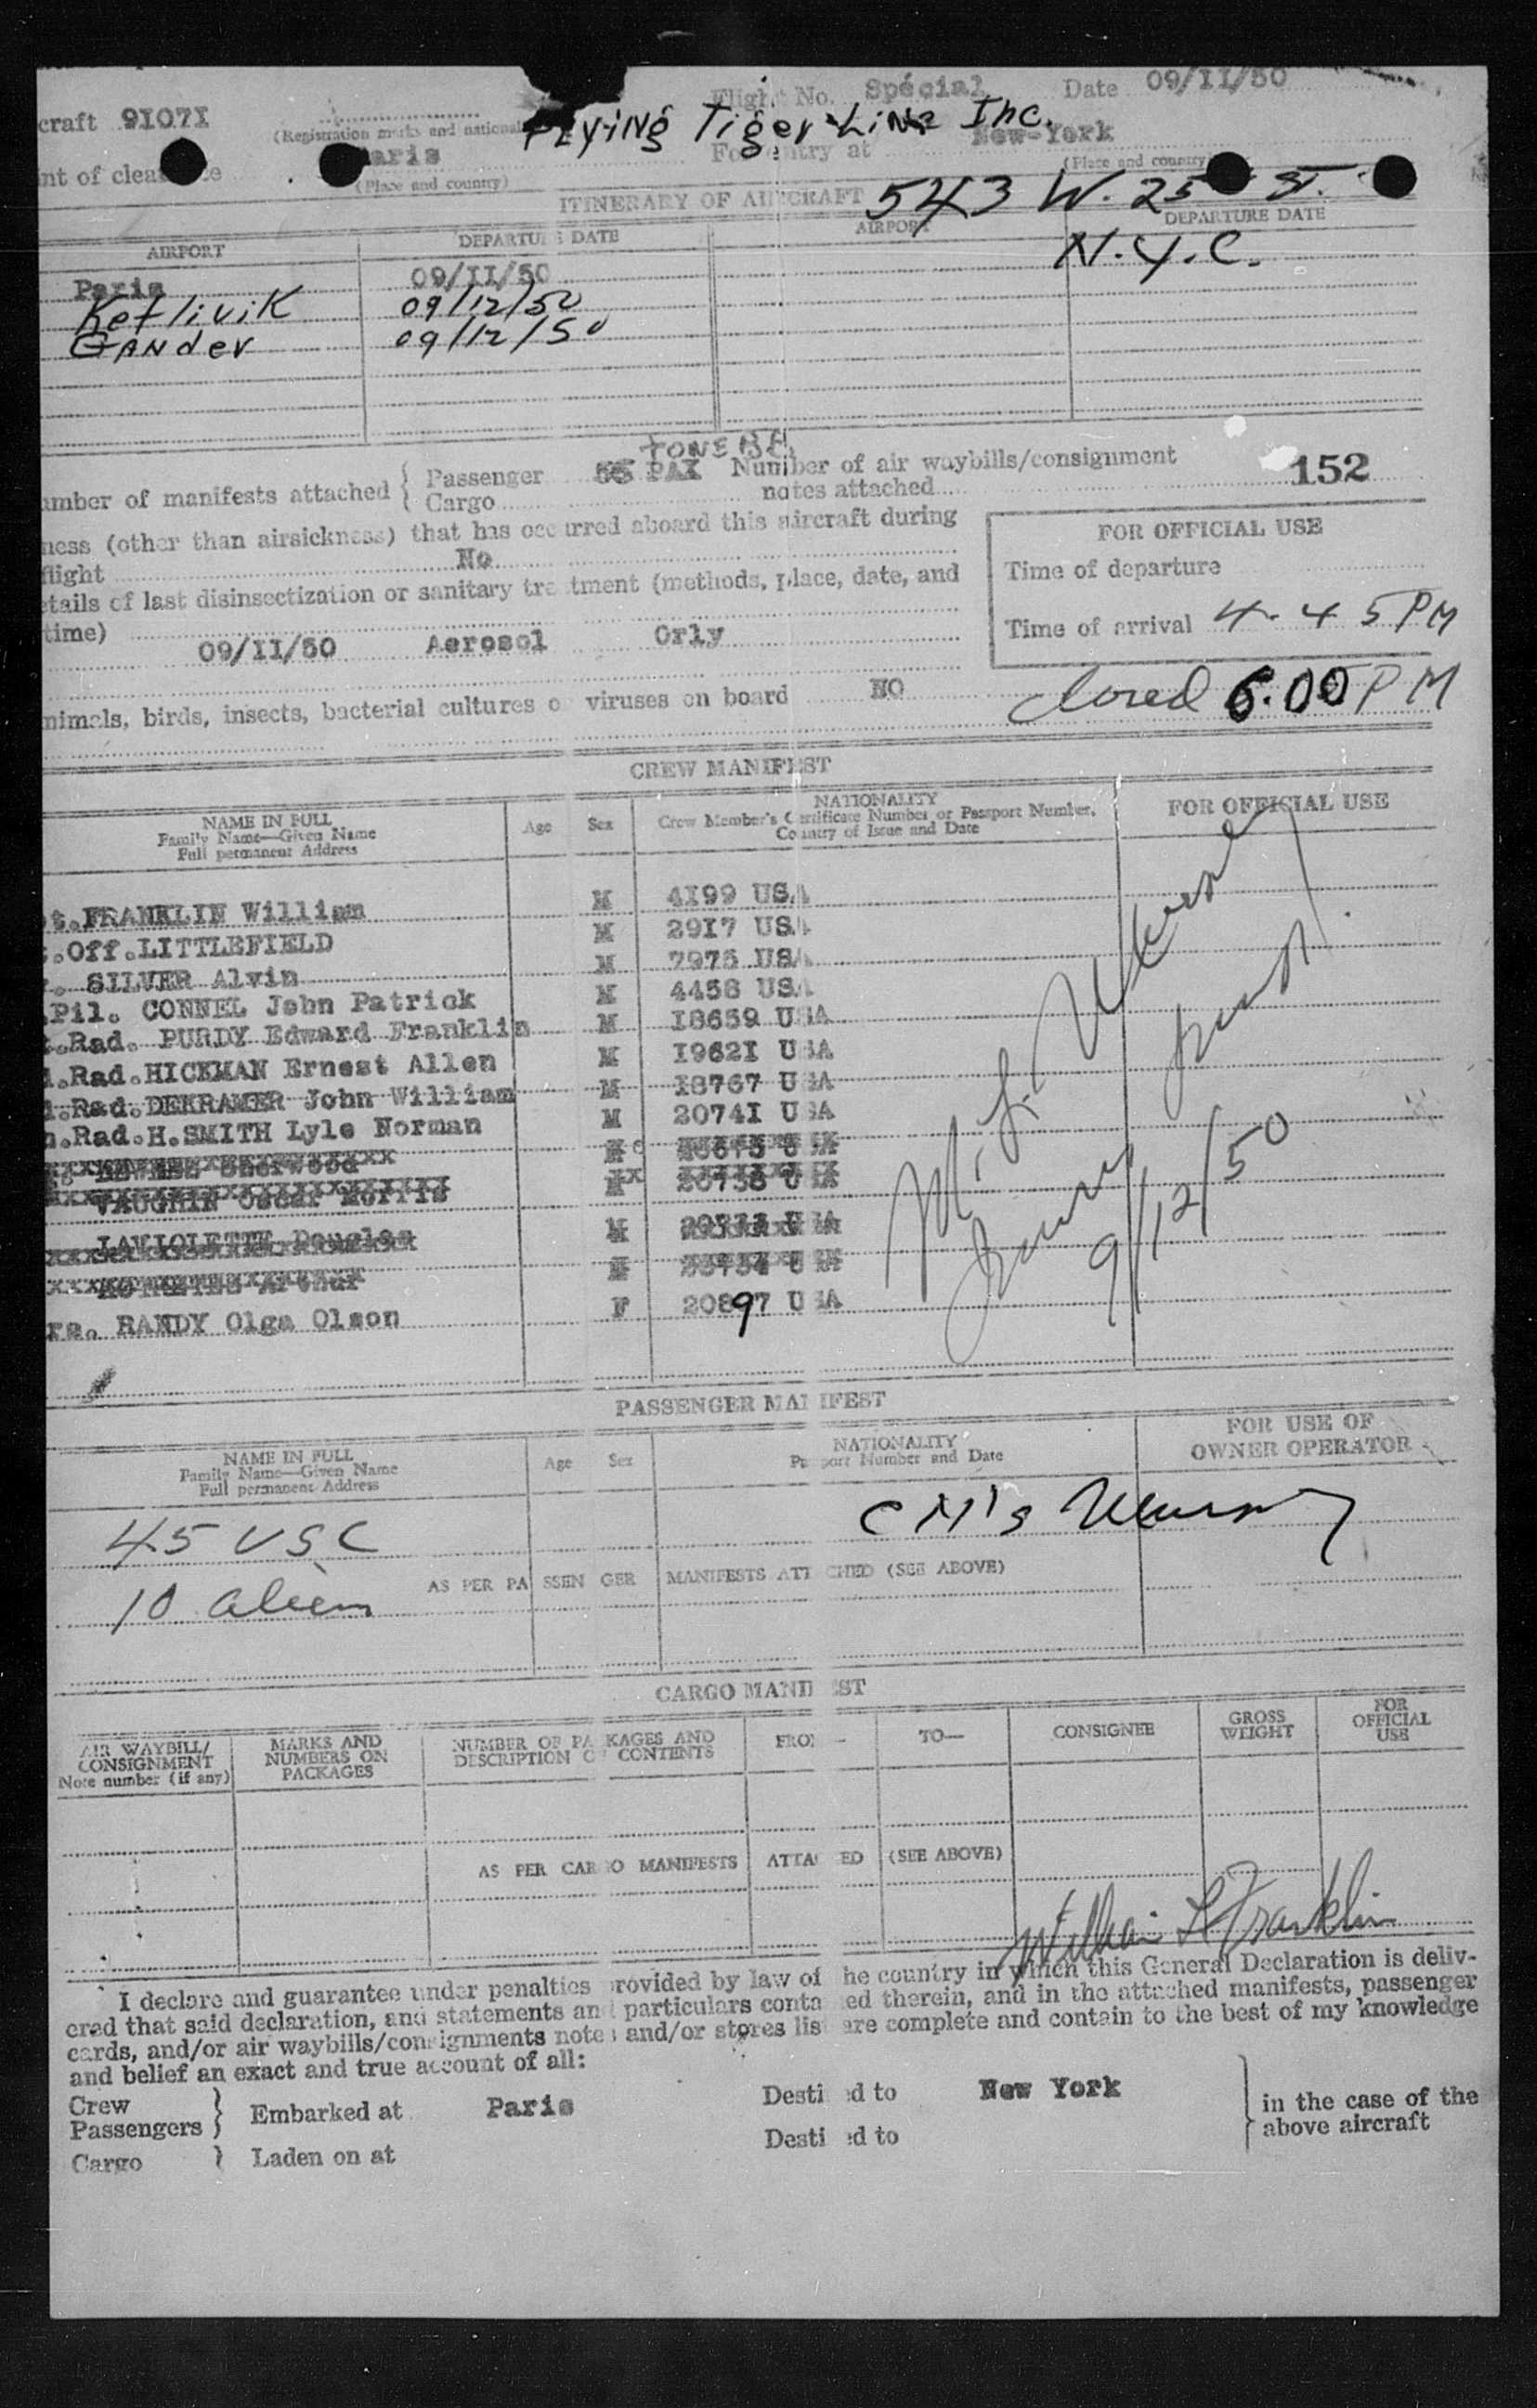 craft 9I07I Flight No. Spécial Date 09/II/50
(Registration marks and national
Flying Tiger Line Inc.
nt of clea e Paris For entry at New-York
(Place and country) (Place and country
ITINERARY OF AIRCRAFT 543 W. 25 ST.
AIRPORT DEPARTURE DATE AIRPORT DEPARTURE DATE
N.Y.C.
Paris 09/II/50
Keflivik 09/12/50
Gander 09/12/50
umber of manifests attached { Passenger 55 PAX Number of air waybills/consignment
Cargo notes attached 152
ness (other than airsickness) that has occurred aboard this aircraft during
flight No
etails of last disinsectization or sanitary treatment (methods, place, date, and
time) 09/II/50 Aerosol Orly
FOR OFFICIAL USE
Time of departure
Time of arrival 4-45 PM
nimals, birds, insects, bacterial cultures or viruses on board NO
closed 6.00 PM
CREW MANIFEST
NAME IN FULL
Family Name—Given Name
Full permanent Address
Age Sex
NATIONALITY
Crew Member's Certificate Number or Passport Number,
Country of Issue and Date
FOR OFFICIAL USE
t.FRANKLIN William M 4I99 USA
.Off.LITTLEFIELD M 29I7 USA
. SILVER Alvin M 7975 USA
.Pil. CONNEL John Patrick M 4458 USA
.Rad. PURDY Edward Franklin M I8659 USA
.Rad.HICKMAN Ernest Allen M I962I USA
.Rad.DEKRAMER John William M I8767 USA
.Rad.H.SMITH Lyle Norman M 2074I USA
VAUGHIN Oscar Morris
LAVIOLETTE Douglas
rs. RANDY Olga Olson F 20897 USA
9/12/50
PASSENGER MANIFEST
NAME IN FULL
Family Name—Given Name
Full permanent Address
Age Sex
NATIONALITY
Passport Number and Date
FOR USE OF
OWNER OPERATOR
45 USC
10 alien
AS PER PASSENGER MANIFESTS ATTACHED (SEE ABOVE)
CARGO MANIFEST
AIR WAYBILL/
CONSIGNMENT
Note number (if any)
MARKS AND
NUMBERS ON
PACKAGES
NUMBER OF PACKAGES AND
DESCRIPTION OF CONTENTS
FROM— TO— CONSIGNEE
GROSS
WEIGHT
FOR
OFFICIAL
USE
AS PER CARGO MANIFESTS ATTACHED (SEE ABOVE)
William L Franklin
I declare and guarantee under penalties provided by law of the country in which this General Declaration is deliv-
ered that said declaration, and statements and particulars contained therein, and in the attached manifests, passenger
cards, and/or air waybills/consignments notes and/or stores list are complete and contain to the best of my knowledge
and belief an exact and true account of all:
Crew
Passengers } Embarked at Paris Destined to New York } in the case of the
above aircraft
Cargo } Laden on at Destined to